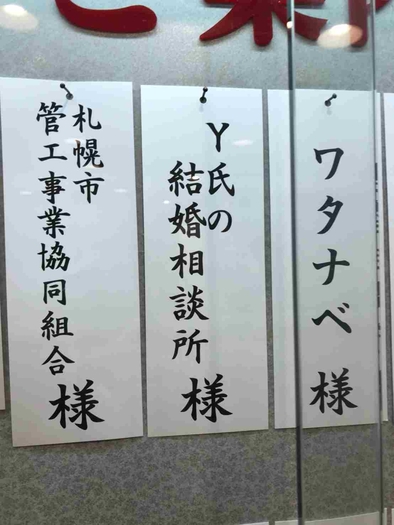 ご案内
ワタナベ
様
Y氏の
結婚相談所
様
札幌市
管工事業協同組合
様